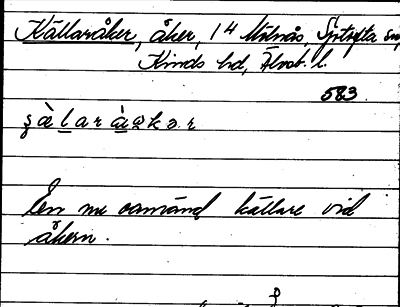 Källaråker, åker, 14 Mölnås, Sjötofta sn,
Kinds hd, Älvsb. l.
583
En nu oanvänd källare vid
åkern.